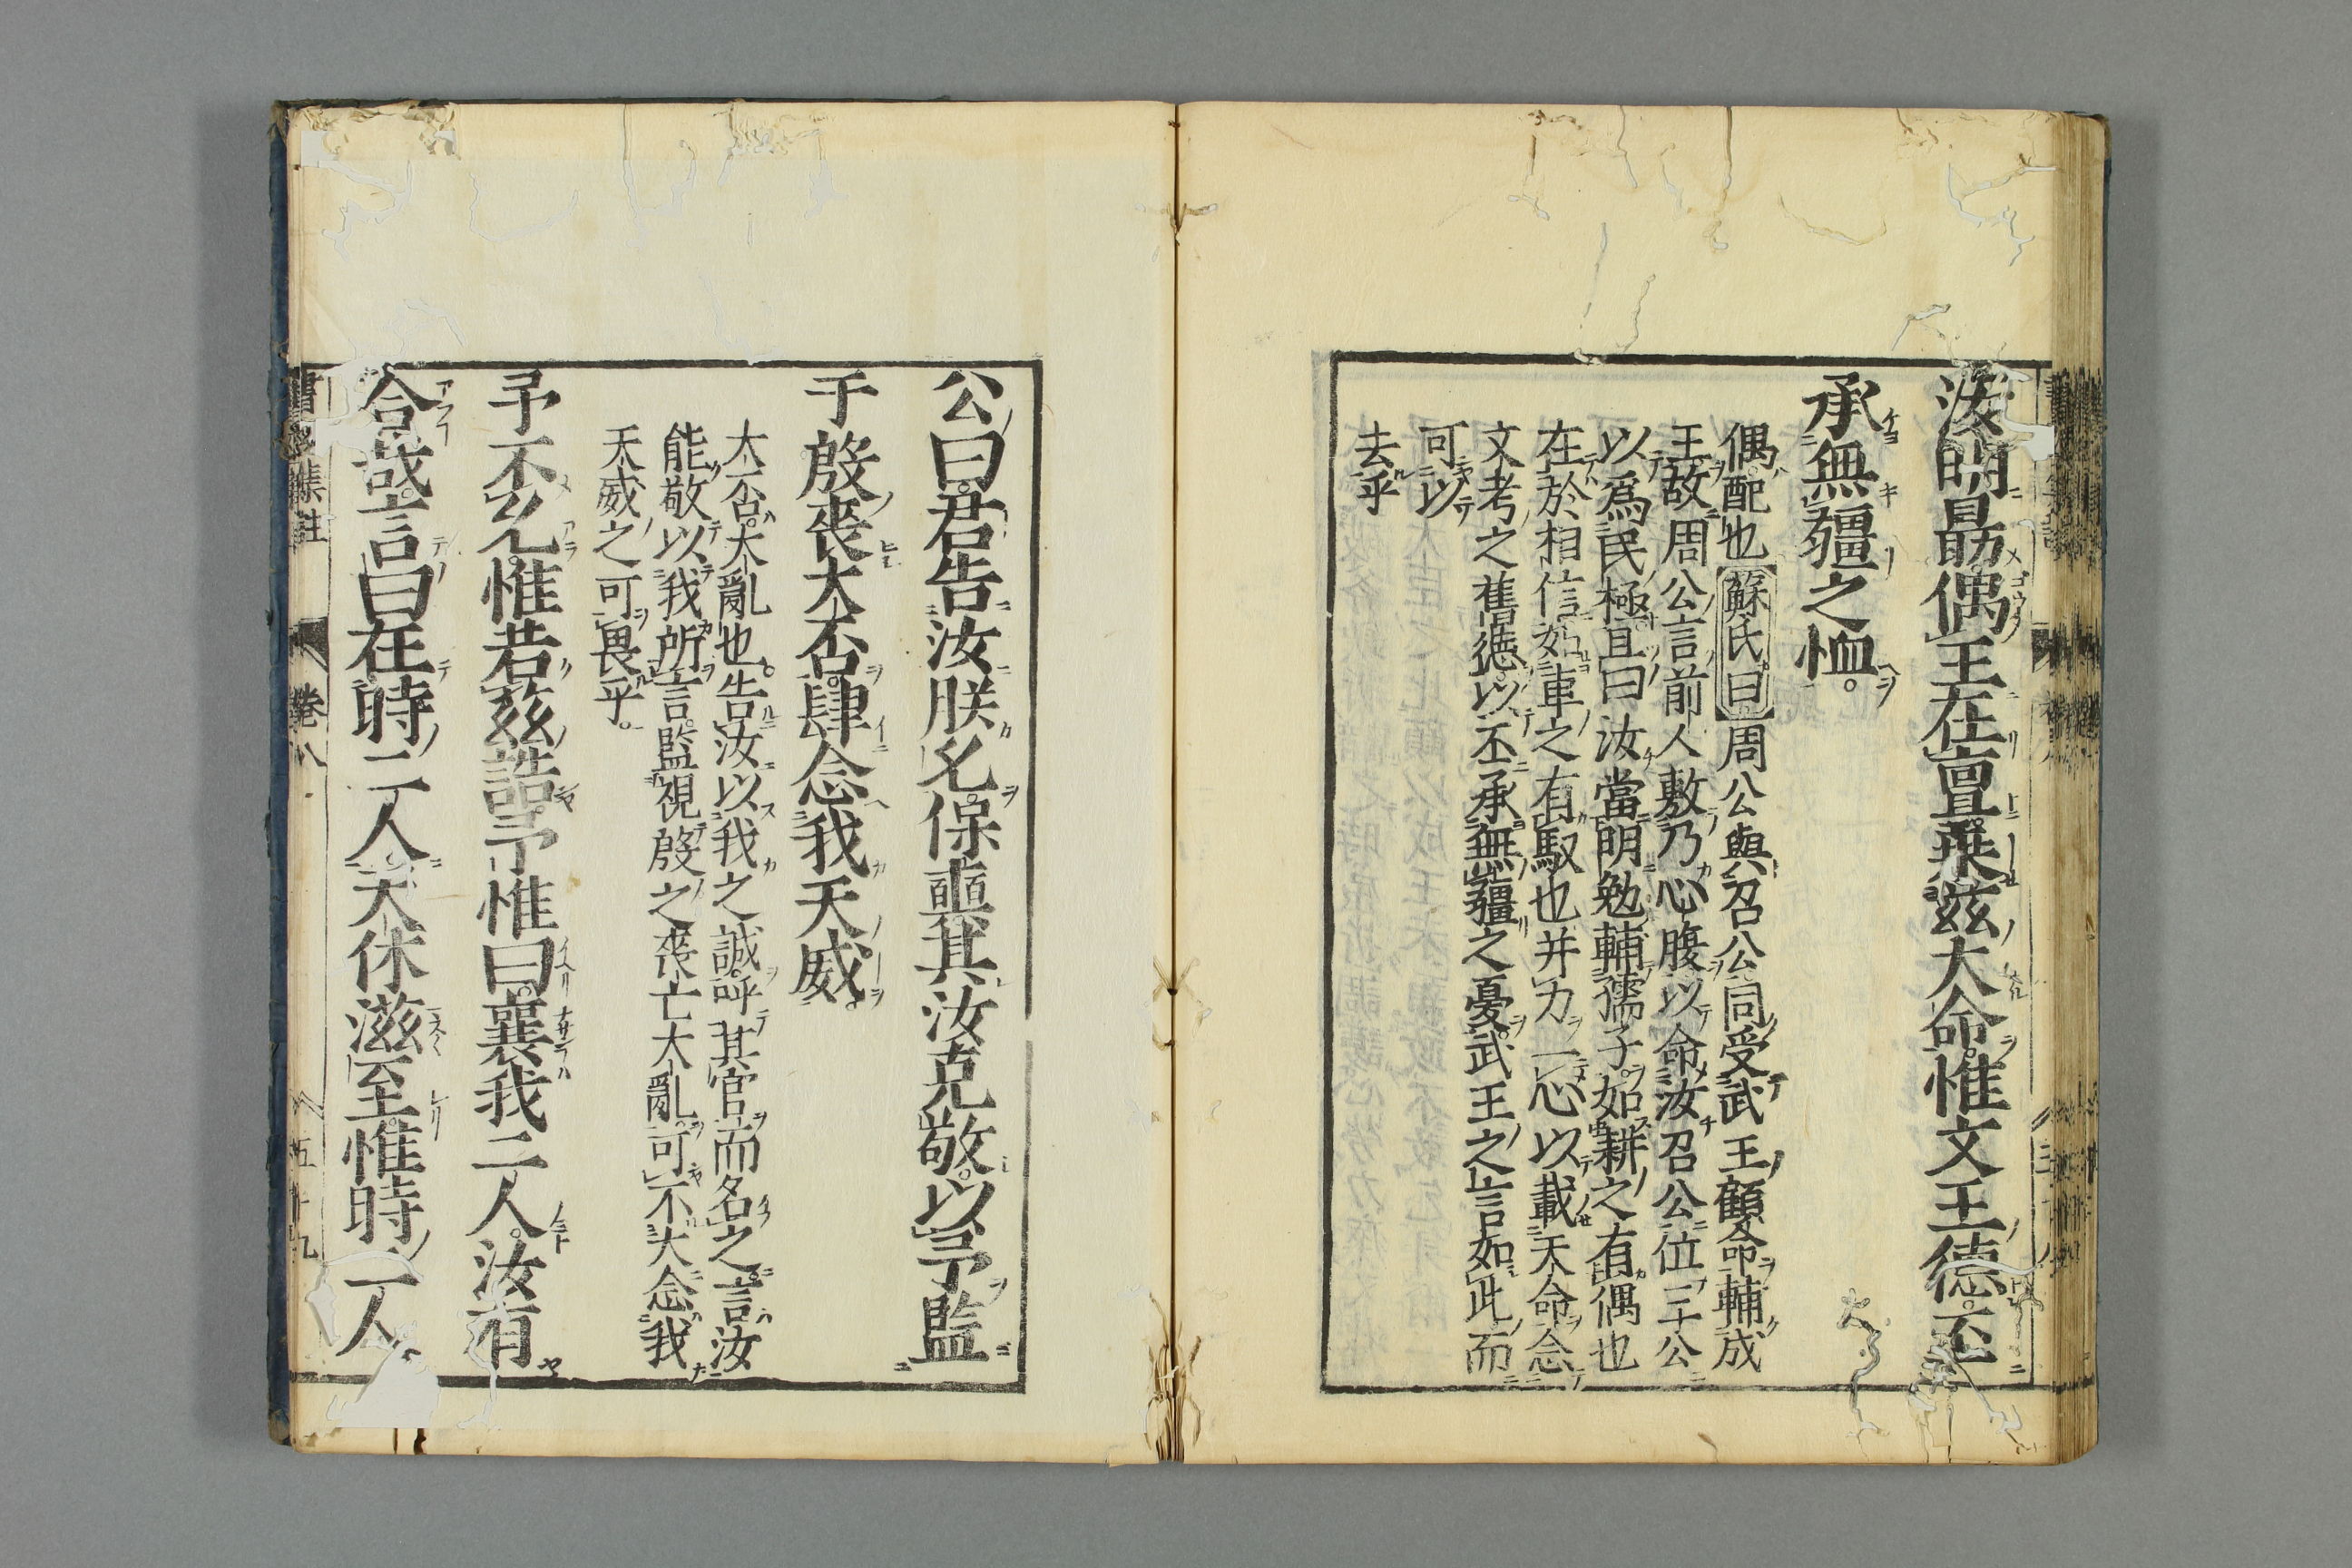 汝明勗偶王在亶乘茲大命惟文王德丕
承無疆之恤
偶配也蘇氏曰周公與召公同受武王顧命輔成
王故周公言前人敷乃心腹以命汝召公位三公
以爲民極且曰汝當明勉輔孺子如耕之有偶也
在於相信如車之有馭也并力一心以載天命念
文考之舊德以丕承無疆之憂武王之言如此而
可以
去乎
公曰君告汝朕允保奭其汝克敬以予監
于殷喪大否肆念我天威
大否大亂也告汝以我之誠呼其官而名之言汝
能敬以我所言監視殷之喪亡大亂可不大念我
天威之可畏乎
予不允惟若茲誥予惟曰襄我二人汝有
合哉言曰在時二人天休滋至惟時二人
書經集註 卷八 五十九